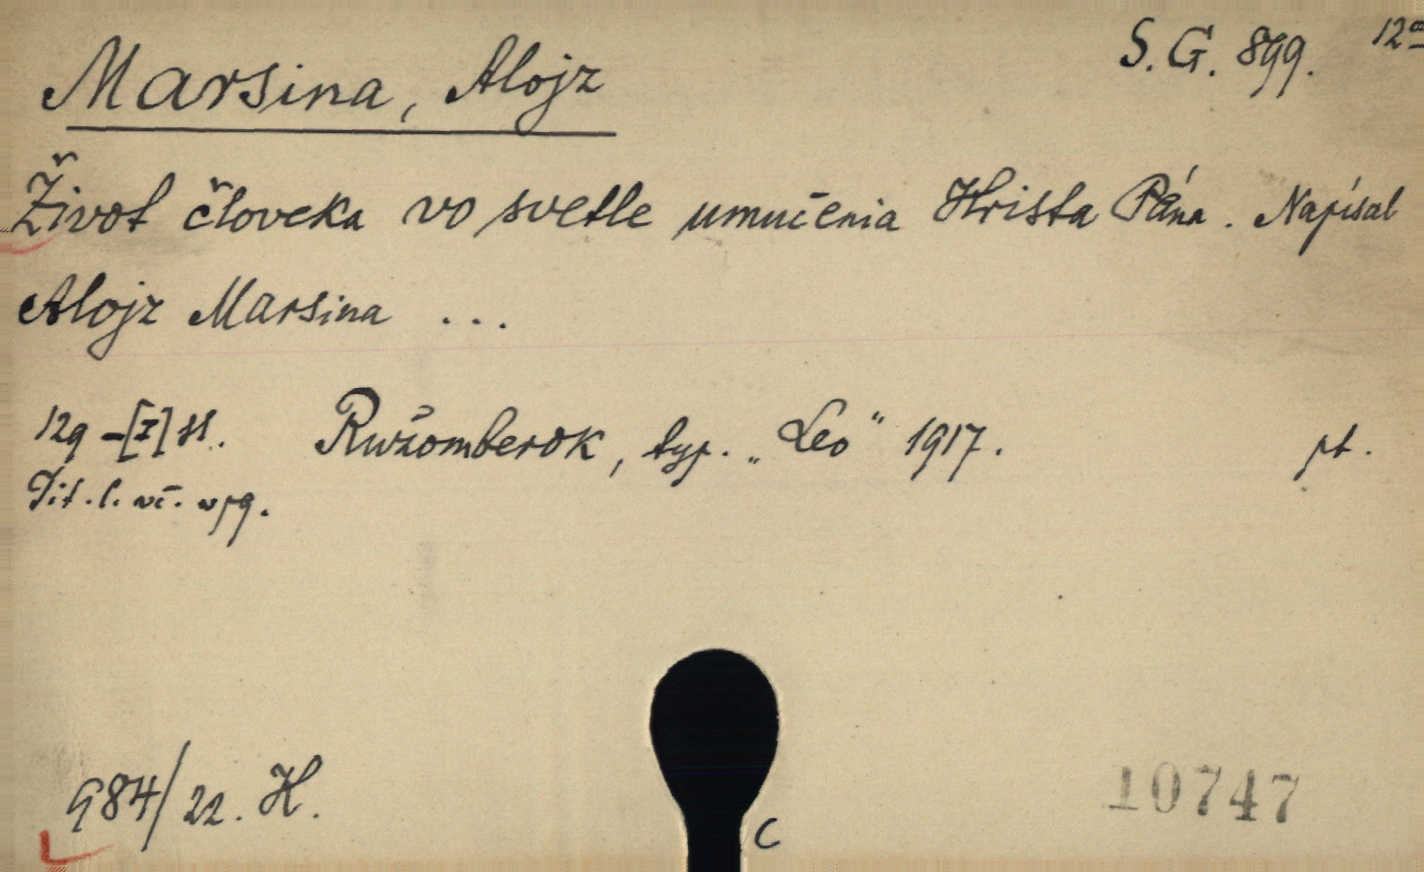 S. G. 899. 12°
Marsina, Alojz
Život človeka vo svetle umučenia Krista Pána. Napísal
Alojz Marsina ...
129 - [I] st. Ružomberok, typ. „Leo“ 1917. pt.
Tit. l. vč. v pg.
984/22. H.
10747
C